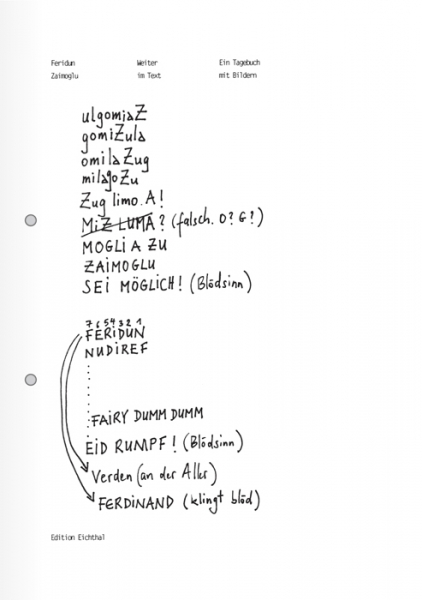 Feridun Weiter Ein Tagebuch
Zaimoglu im Text mit Bildern
ulgomiaZ
gomiZula
omilaZug
milagoZu
Zug limo. A!
MiZ LUMA? (falsch. O? G?)
MOGLi A ZU
ZAiMOGLU
SEi MÖGLiCH! (Blödsinn)
7 6 5 4 3 2 1
FERiDUN
NUDiREF
FAiRY DUMM DUMM
EiD RUMPF! (Blödsinn)
Verden (an der Aller)
FERDiNAND (klingt blöd)
Edition Eichthal